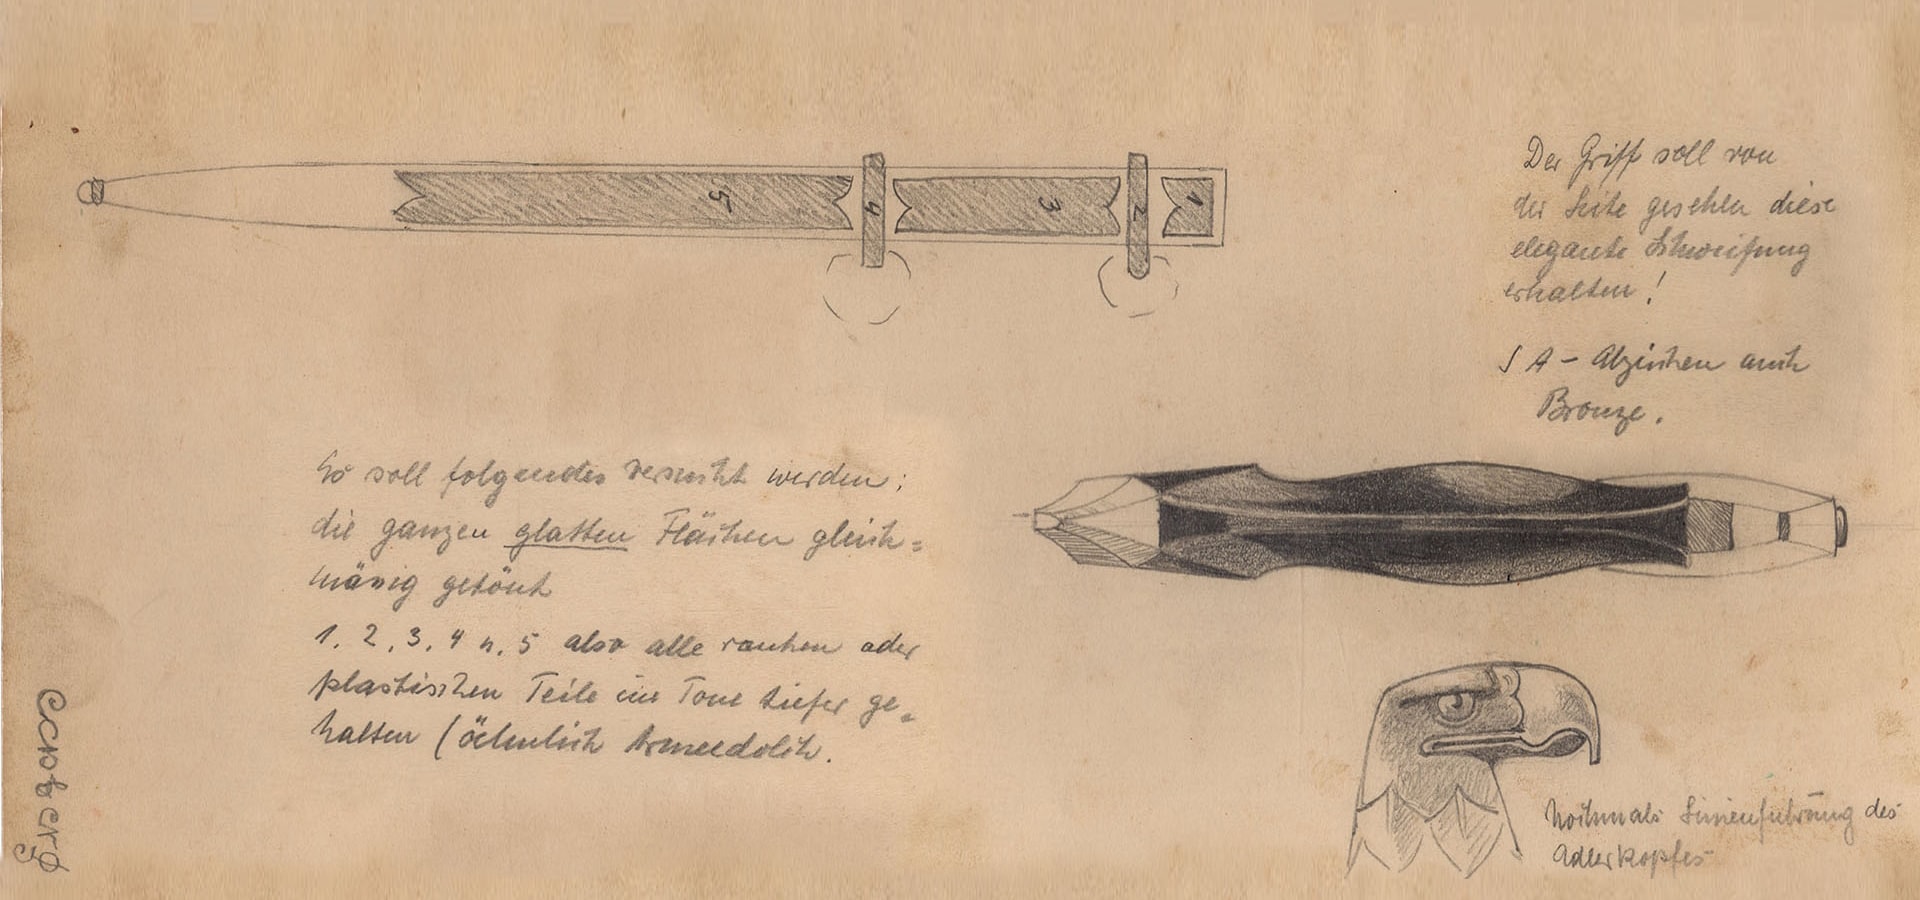 Der Griff soll von
der Seite gesehen diese
elegante Schweifung
erhalten!
SA - Abzeichen auch
Bronze.
So soll folgendes versucht werden:
die ganzen glatten Flächen gleich=
mäsig getönt
1, 2, 3, 4 u. 5 also alle rauhen oder
plastischen Teile im Tone tiefer ge=
halten (ähnlich Armeedolch.
5
4
3
2
1
Nochmals Linienführung des
Adlerkopfes